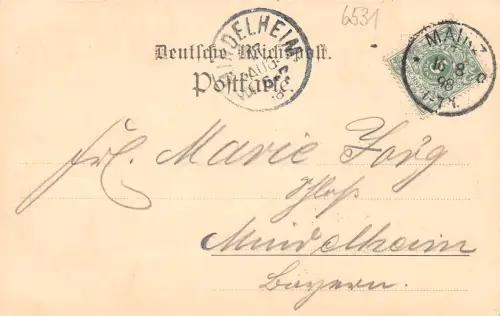 6531
MINDELHEIM
AUG
MAINZ
16 8
98
Deutsche Reichspost.
Postkarte.
Frl. Marie Jörg
Schloß
Mindelheim
Bayern.